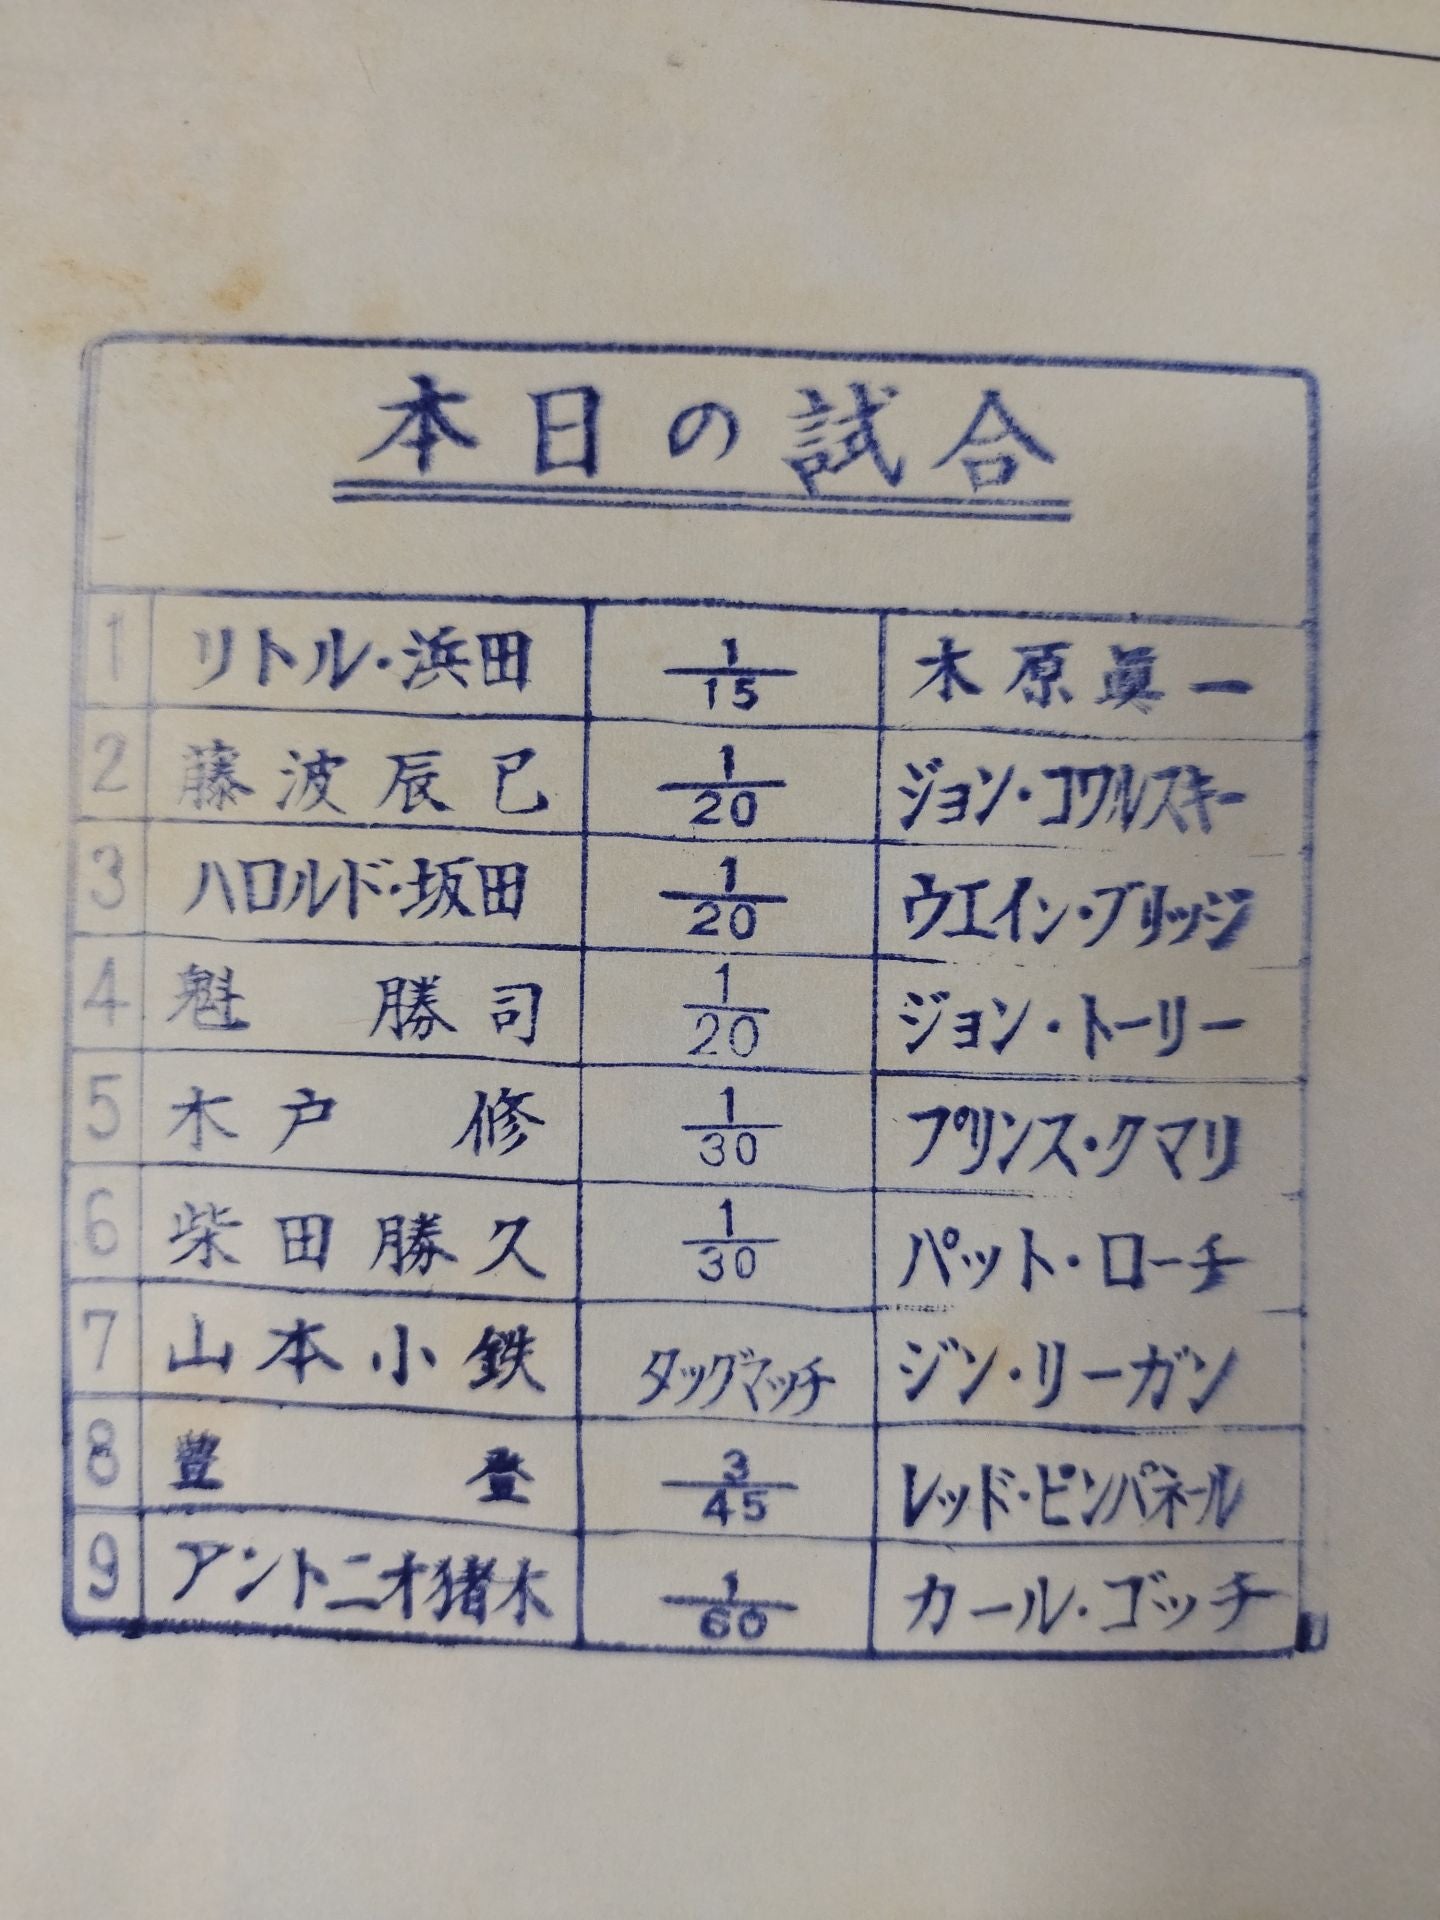 本日の試合
1 リトル・浜田 1/15 木原眞一
2 藤波辰巳 1/20 ジョン・コワルスキー
3 ハロルド・坂田 1/20 ウエイン・ブリッジ
4 魁勝司 1/20 ジョン・トーリー
5 木戸修 1/30 プリンス・クマリ
6 柴田勝久 1/30 パット・ローチ
7 山本小鉄 タッグマッチ ジン・リーガン
8 豊登 3/45 レッド・ピンパネール
9 アントニオ猪木 1/60 カール・ゴッチ